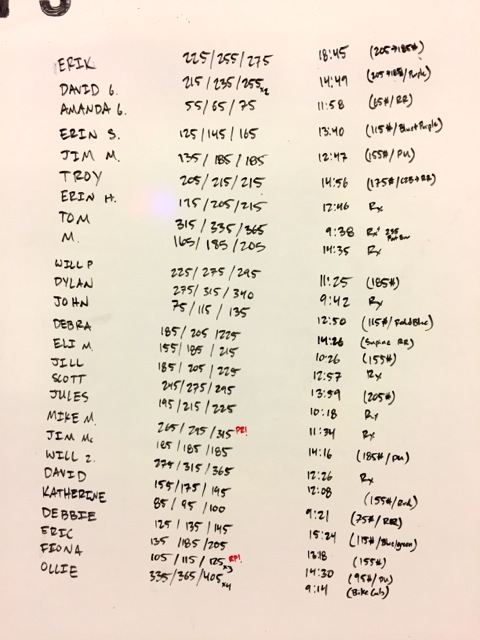 ERIK 225/255/275 18:45 (205→185#)
DAVID G. 215/235/255x2 14:49 (205→185#/Purple)
AMANDA G. 55/65/75 11:58 (65#/RR)
ERIN S. 125/145/165 13:40 (115#/Blue+Purple)
JIM M. 135/185/185 12:47 (155#/DU)
TROY 205/215/215 14:56
ERIN H. 175/205/215 12:46 Rx
TOM 315/335/365 9:38 Rx+ 235
M. 165/185/205 14:35 Rx
WILL P 225/275/295 11:25 (185#)
DYLAN 275/315/340 9:42 Rx
JOHN 75/115/135 12:50 (115#/Fold Blue)
DEBRA 185/205/225 14:26 (Supine RR)
ELI M. 155/185/215 10:26 (155#)
JILL 185/205/225 12:57 Rx
SCOTT 245/275/295 13:59 (205#)
JULES 195/215/225 10:18 Rx
MIKE M. 265/295/315 PR! 11:34 Rx
JIM Mc 185/185/185 14:16 (185#/DU)
WILL Z. 275/315/365 12:26 Rx
DAVID 155/175/195 12:08 (155#/Red)
KATHERINE 85/95/100 9:21 (75#/RR)
DEBBIE 125/135/145 15:24 (115#/Blue/green)
ERIC 135/185/205 13:18 (155#)
FIONA 105/115/125x3 RP! 14:30 (95#/DU)
OLLIE 335/365/405x4 9:14 (Bike Cals)